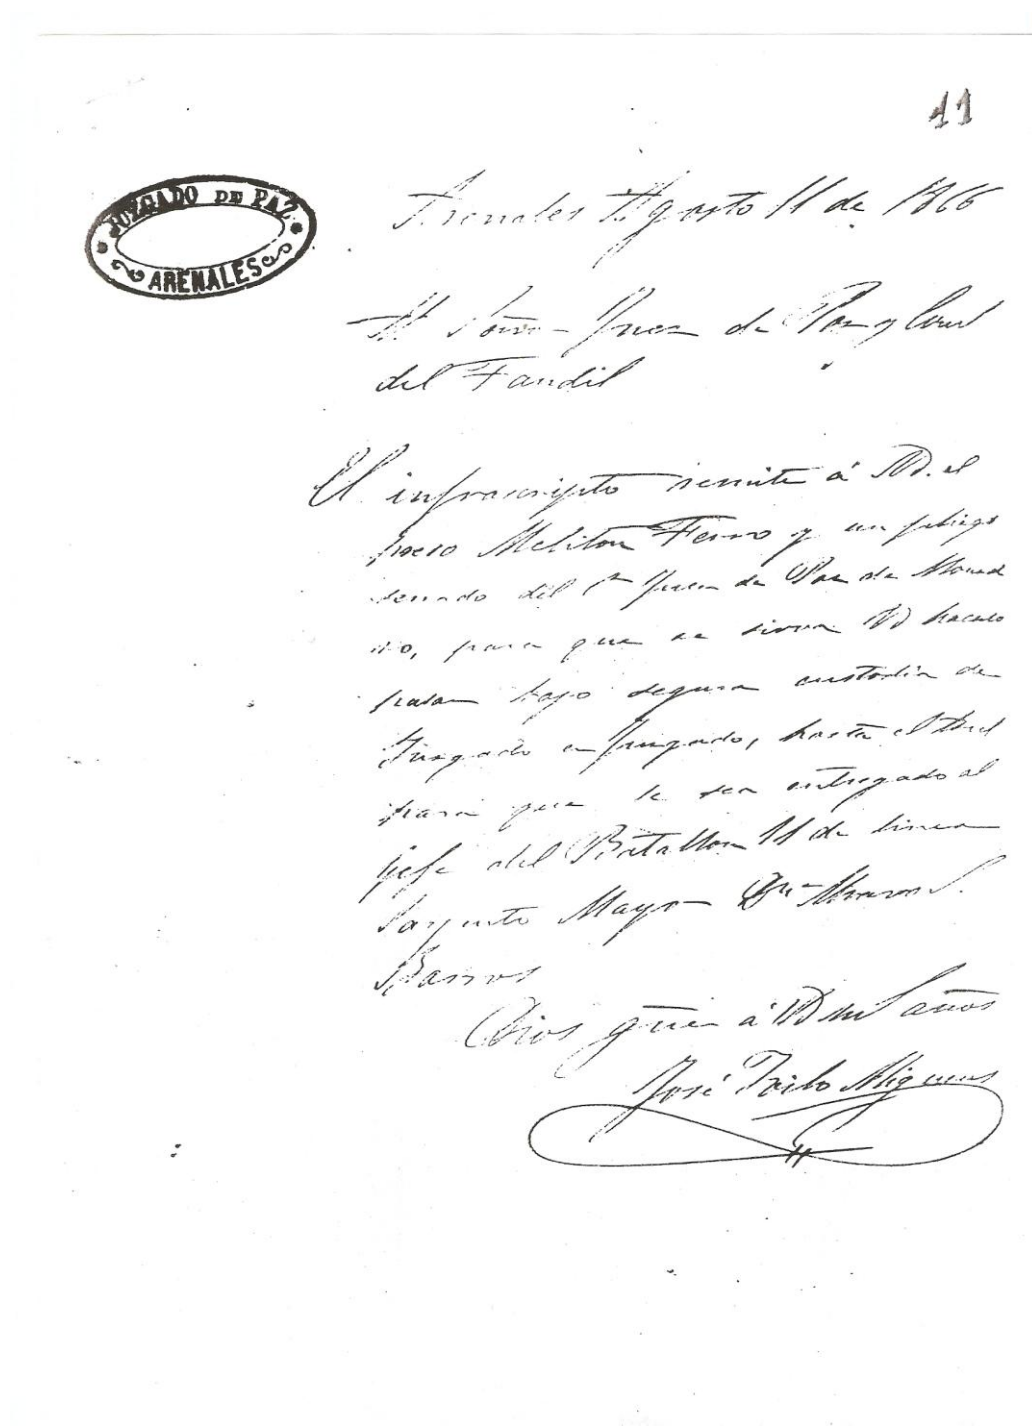 11
JUZGADO DE PAZ
ARENALES
Arenales Agosto 11 de 1866
Al Señor Juez de Paz y
del Tandil
El infrascripto remite á VD. el
preso Meliton Ferro y un pliego
serrado del Sr Juez de Paz de
para que se sirva VD hacerlo
pasar bajo segura custodia de
Juzgado en Juzgado, hasta el
para que le sea entregado al
jefe del Batallon 11 de linea
Sargento Mayor Dn
Barros
Dios güe á VD ml años
José Miguens